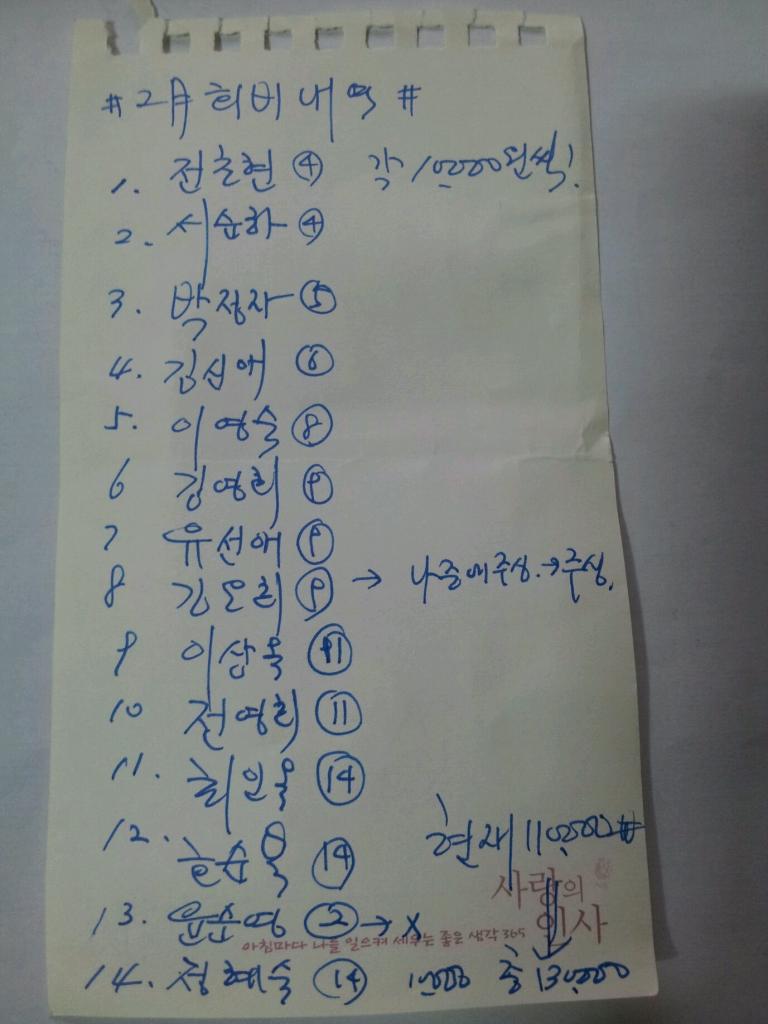 # 2月 회비내역 #
1. 전춘현 ④ 각 10,000원씩!
2. 서순하 ④
3. 박정자 ⑤
4. 김신애 ⑥
5. 이영숙 ⑧
6 김영희 ⑨
7 유선애 ⑨
8 김도희 ⑨ → 나중에 주심. → 주심.
9 이삼옥 ⑪
10 전영희 ⑪
11. 최인옥 ⑭
12. 순옥 ⑭
현재 110,000#
사랑의
인사
13. 윤순영 ② → X
아침마다 나를 일으켜 세우는 좋은 생각 365
14. 정혜숙 ⑭ 10,000 총 130,000